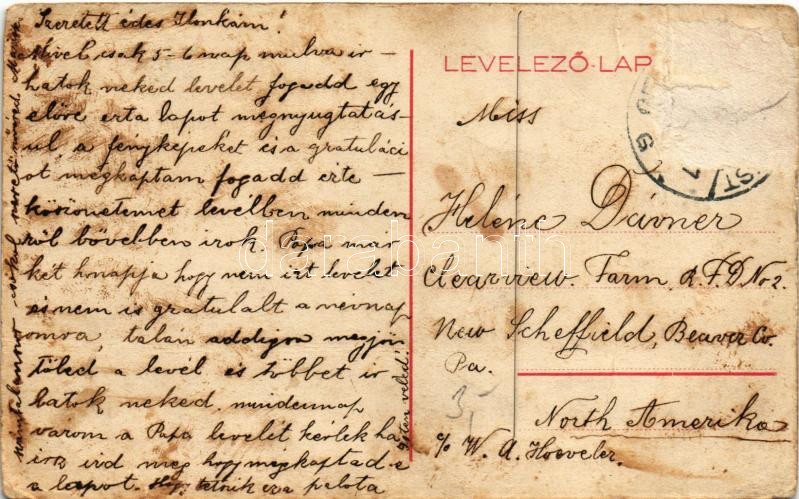 Szeretett édes Ilonkám!
Mivel csak 5-6 nap mulva ir-
hatok neked levelet fogadd egy
előre erta lapot megnyugtatás-
ul, a fényképeket és a gratuláci
ót megkaptam fogadd érte
köszönetemet levélben minden
ről bővebben irok. Papa már
két honapja hogy nem irt levelet
és nem is gratulált a névnap
omra, talán addigra megjön
töled a levél és többet ir
hatok neked. mindennap
várom a Papa levelét kérlek ha
irsz ird meg hogy megkaptad-e
a lapot. Hogy tetszik eza palota
Isten veled!
szerető nőved
LEVELEZŐ-LAP
Miss
Heléne Dávner
Clearview Farm R.F.D No 2.
New Scheffield, Beaver Co.
Pa.
North Amerika
c/o W. A. Hoeveler.
3,-
darabanth